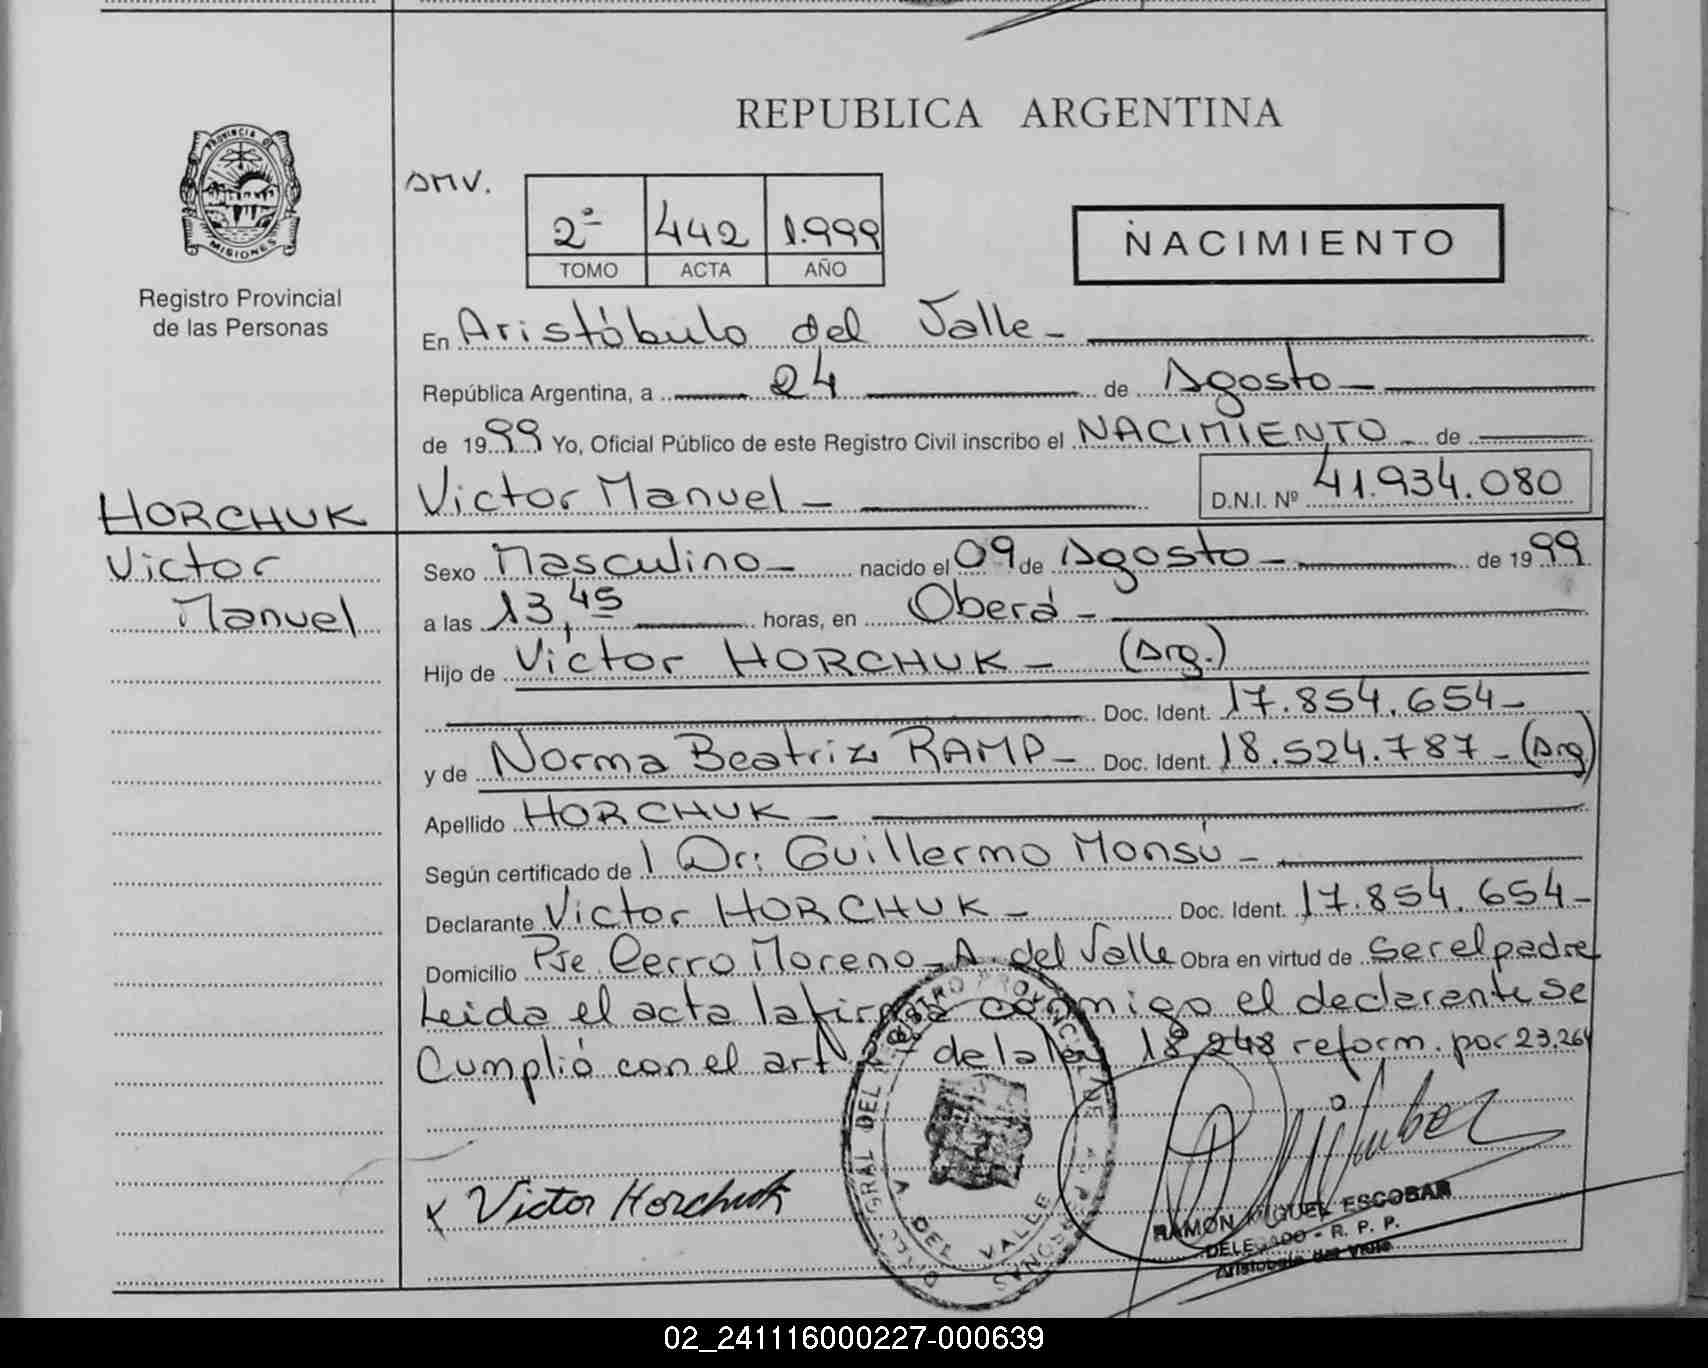 REPUBLICA ARGENTINA
PROVINCIA DE MISIONES
Registro Provincial
de las Personas
SMV.
2º 442 1.999
TOMO ACTA AÑO
NACIMIENTO
En Aristóbulo del Valle -
República Argentina, a 24 de Agosto -
de 1999 Yo, Oficial Público de este Registro Civil inscribo el NACIMIENTO - de
Victor Manuel - D.N.I. Nº 41.934.080
HORCHUK
Victor
Manuel
Sexo Masculino - nacido el 09 de Agosto - de 1999
a las 13,45 horas, en Oberá -
Hijo de Victor HORCHUK - (Arg.)
Doc. Ident. 17.854.654 -
y de Norma Beatriz RAMP - Doc. Ident. 18.524.787 - (Arg)
Apellido HORCHUK -
Según certificado de l Dr: Guillermo Monsú -
Declarante Victor HORCHUK - Doc. Ident. 17.854.654 -
Domicilio Pje Cerro Moreno - A. del Valle Obra en virtud de ser el padre
Leida el acta la firma conmigo el declarante se
Cumplió con el art 2º de la ley 18248 reform. por 23.264
x Victor Horchuk
A. DEL VALLE
RAMON MIGUEL ESCOBAR
DELEGADO - R. P. P.
Aristobulo del Valle
02_241116000227-000639